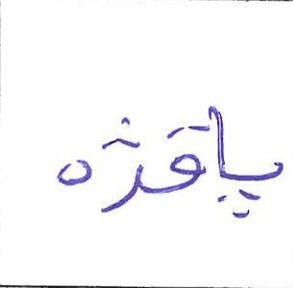 پاقژه